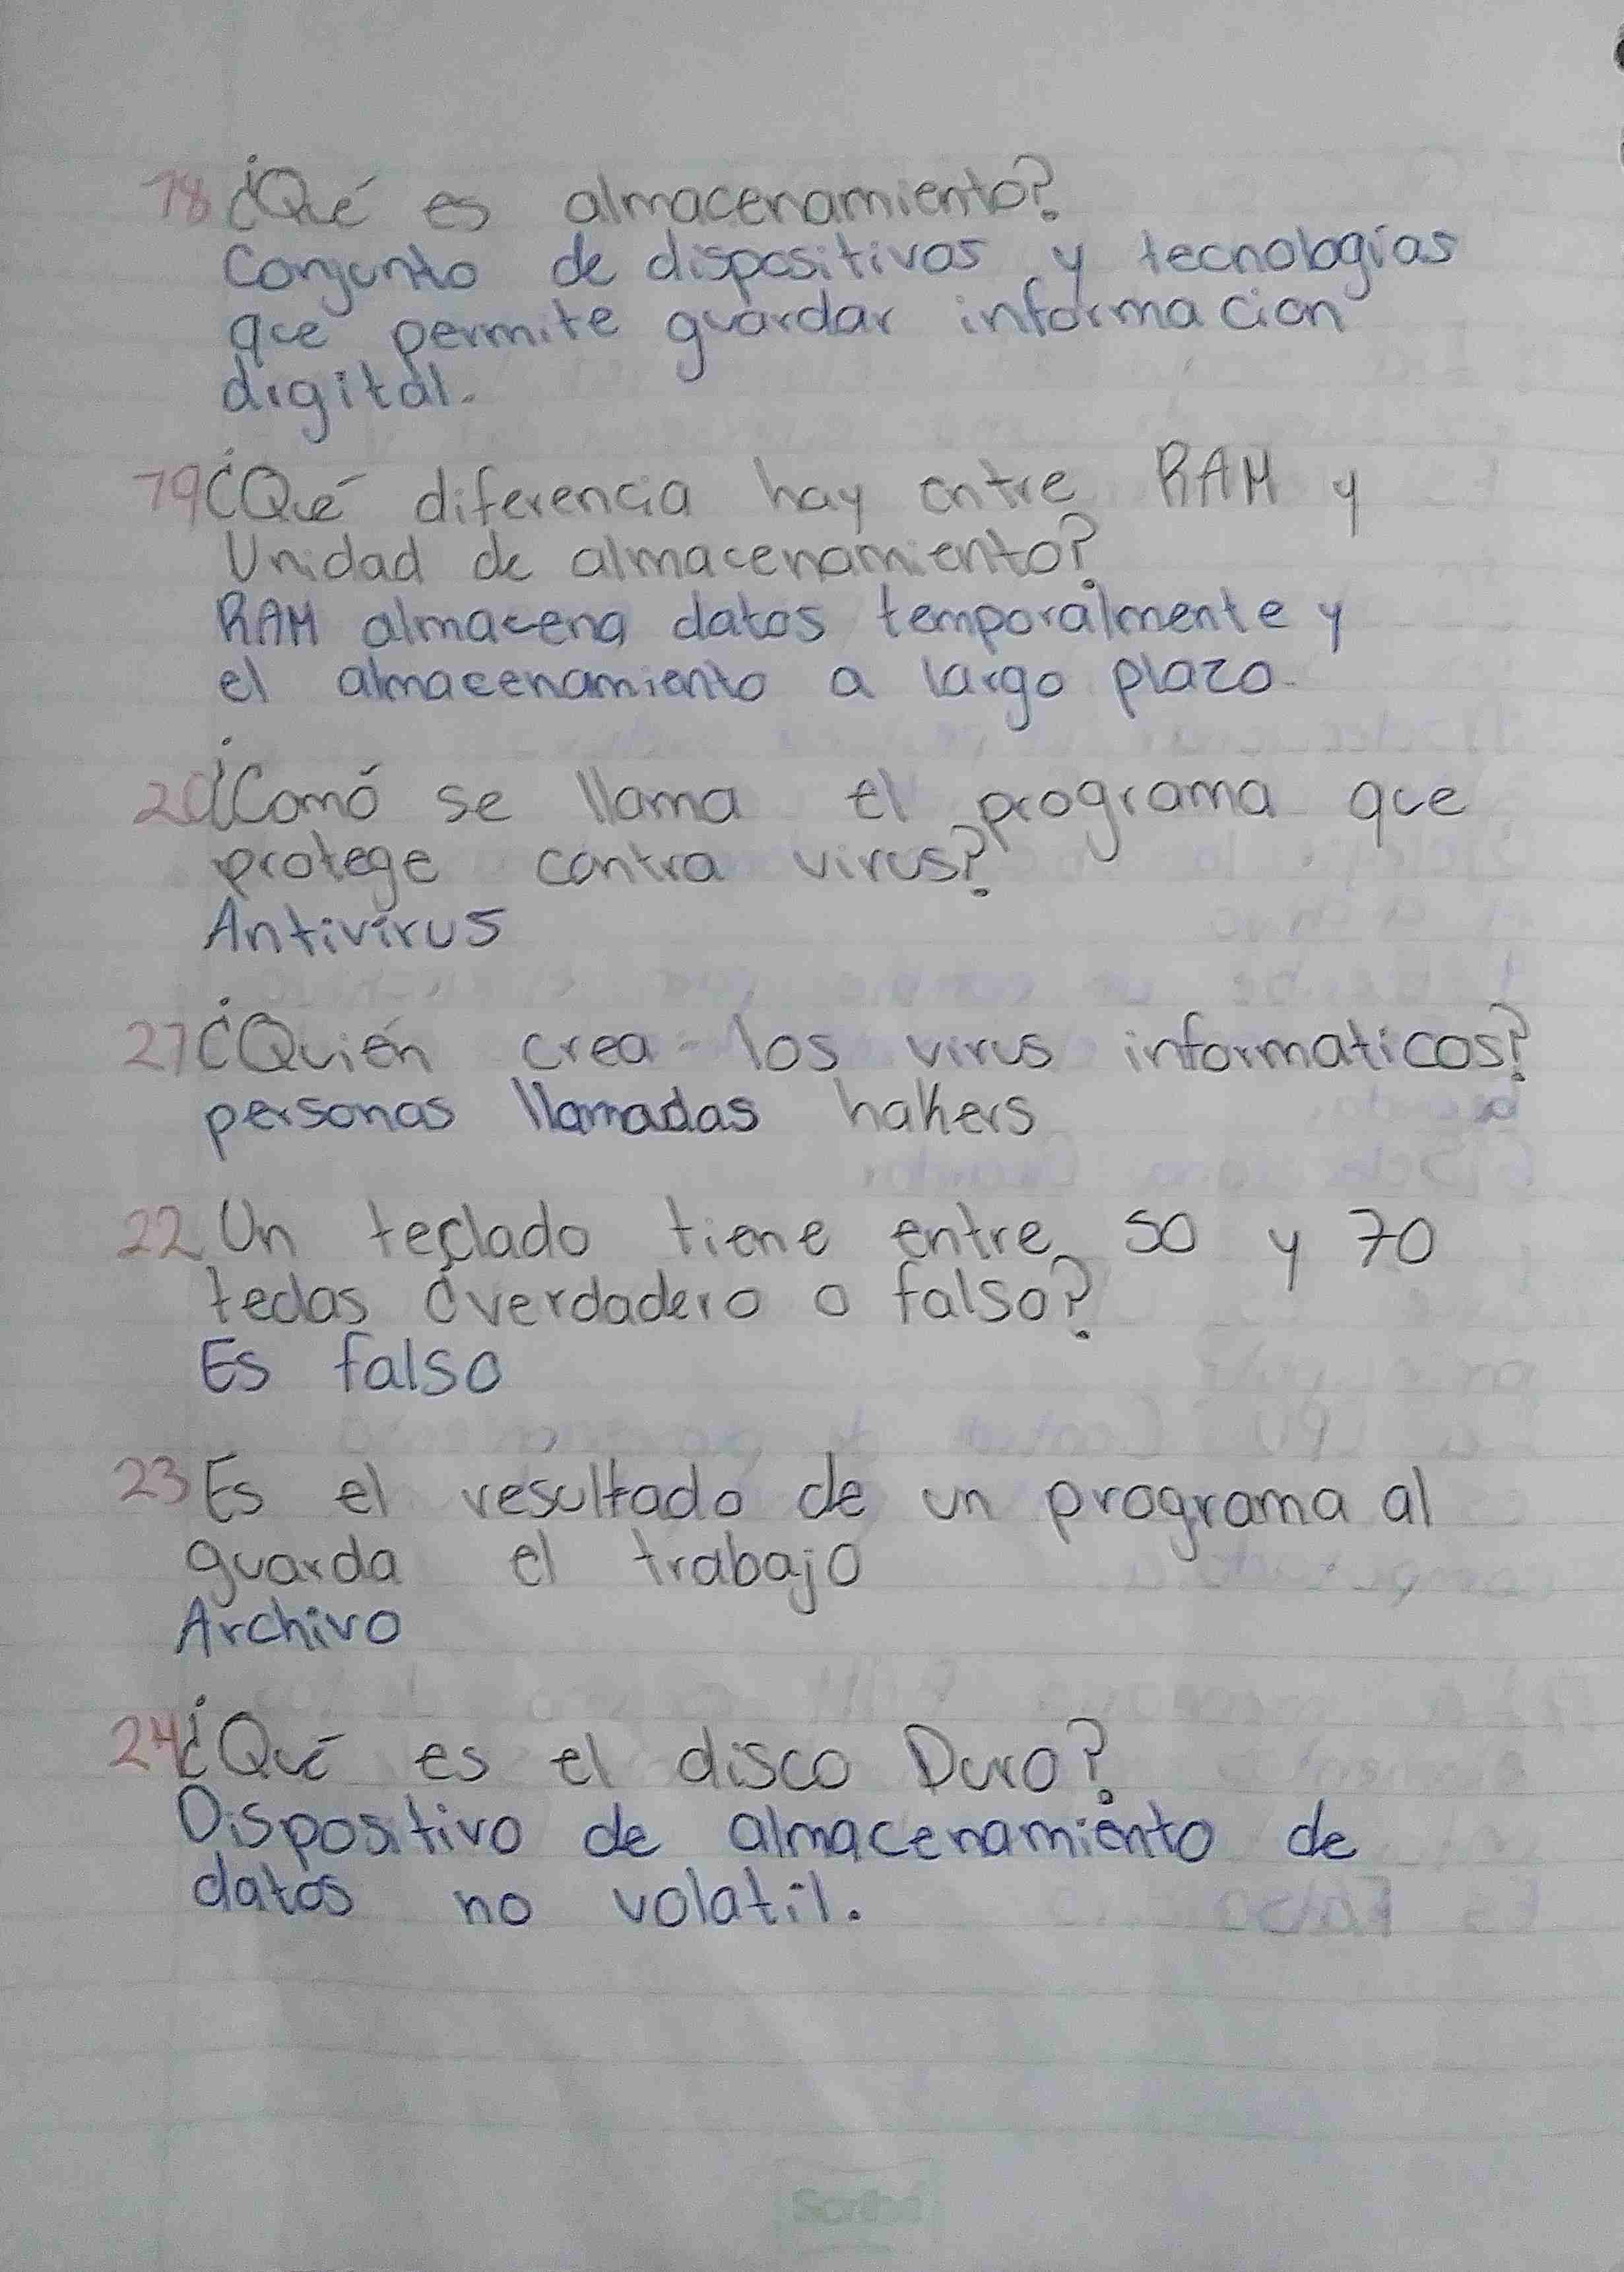 18 ¿Qué es almacenamiento?
Conjunto de dispositivos y tecnologías
que permite guardar informacion
digital.
19 ¿Qué diferencia hay entre RAM y
Unidad de almacenamiento?
RAM almacena datos temporalmente y
el almacenamiento a largo plazo.
20 ¿Comó se llama el programa que
protege contra virus?
Antivirus
21 ¿Quién crea los virus informaticos?
personas llamadas hakers
22 Un teclado tiene entre 50 y 70
teclas ¿verdadero o falso?
Es falso
23 Es el resultado de un programa al
guarda el trabajo
Archivo
24 ¿Qué es el disco Duro?
Dispositivo de almacenamiento de
datos no volatil.
Scribe